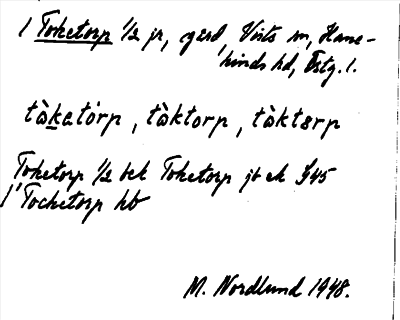 1 Toketorp 1/2 jr, gård Vists sn, Hane-
kinds hd, Östg. l.
tà̱ka̱tórp, tàktorp, tàktɵrp
Toketorp 1/2 bek Toketorp jb ek 845
1 Tocketorp hb
M. Nordlund 1948.